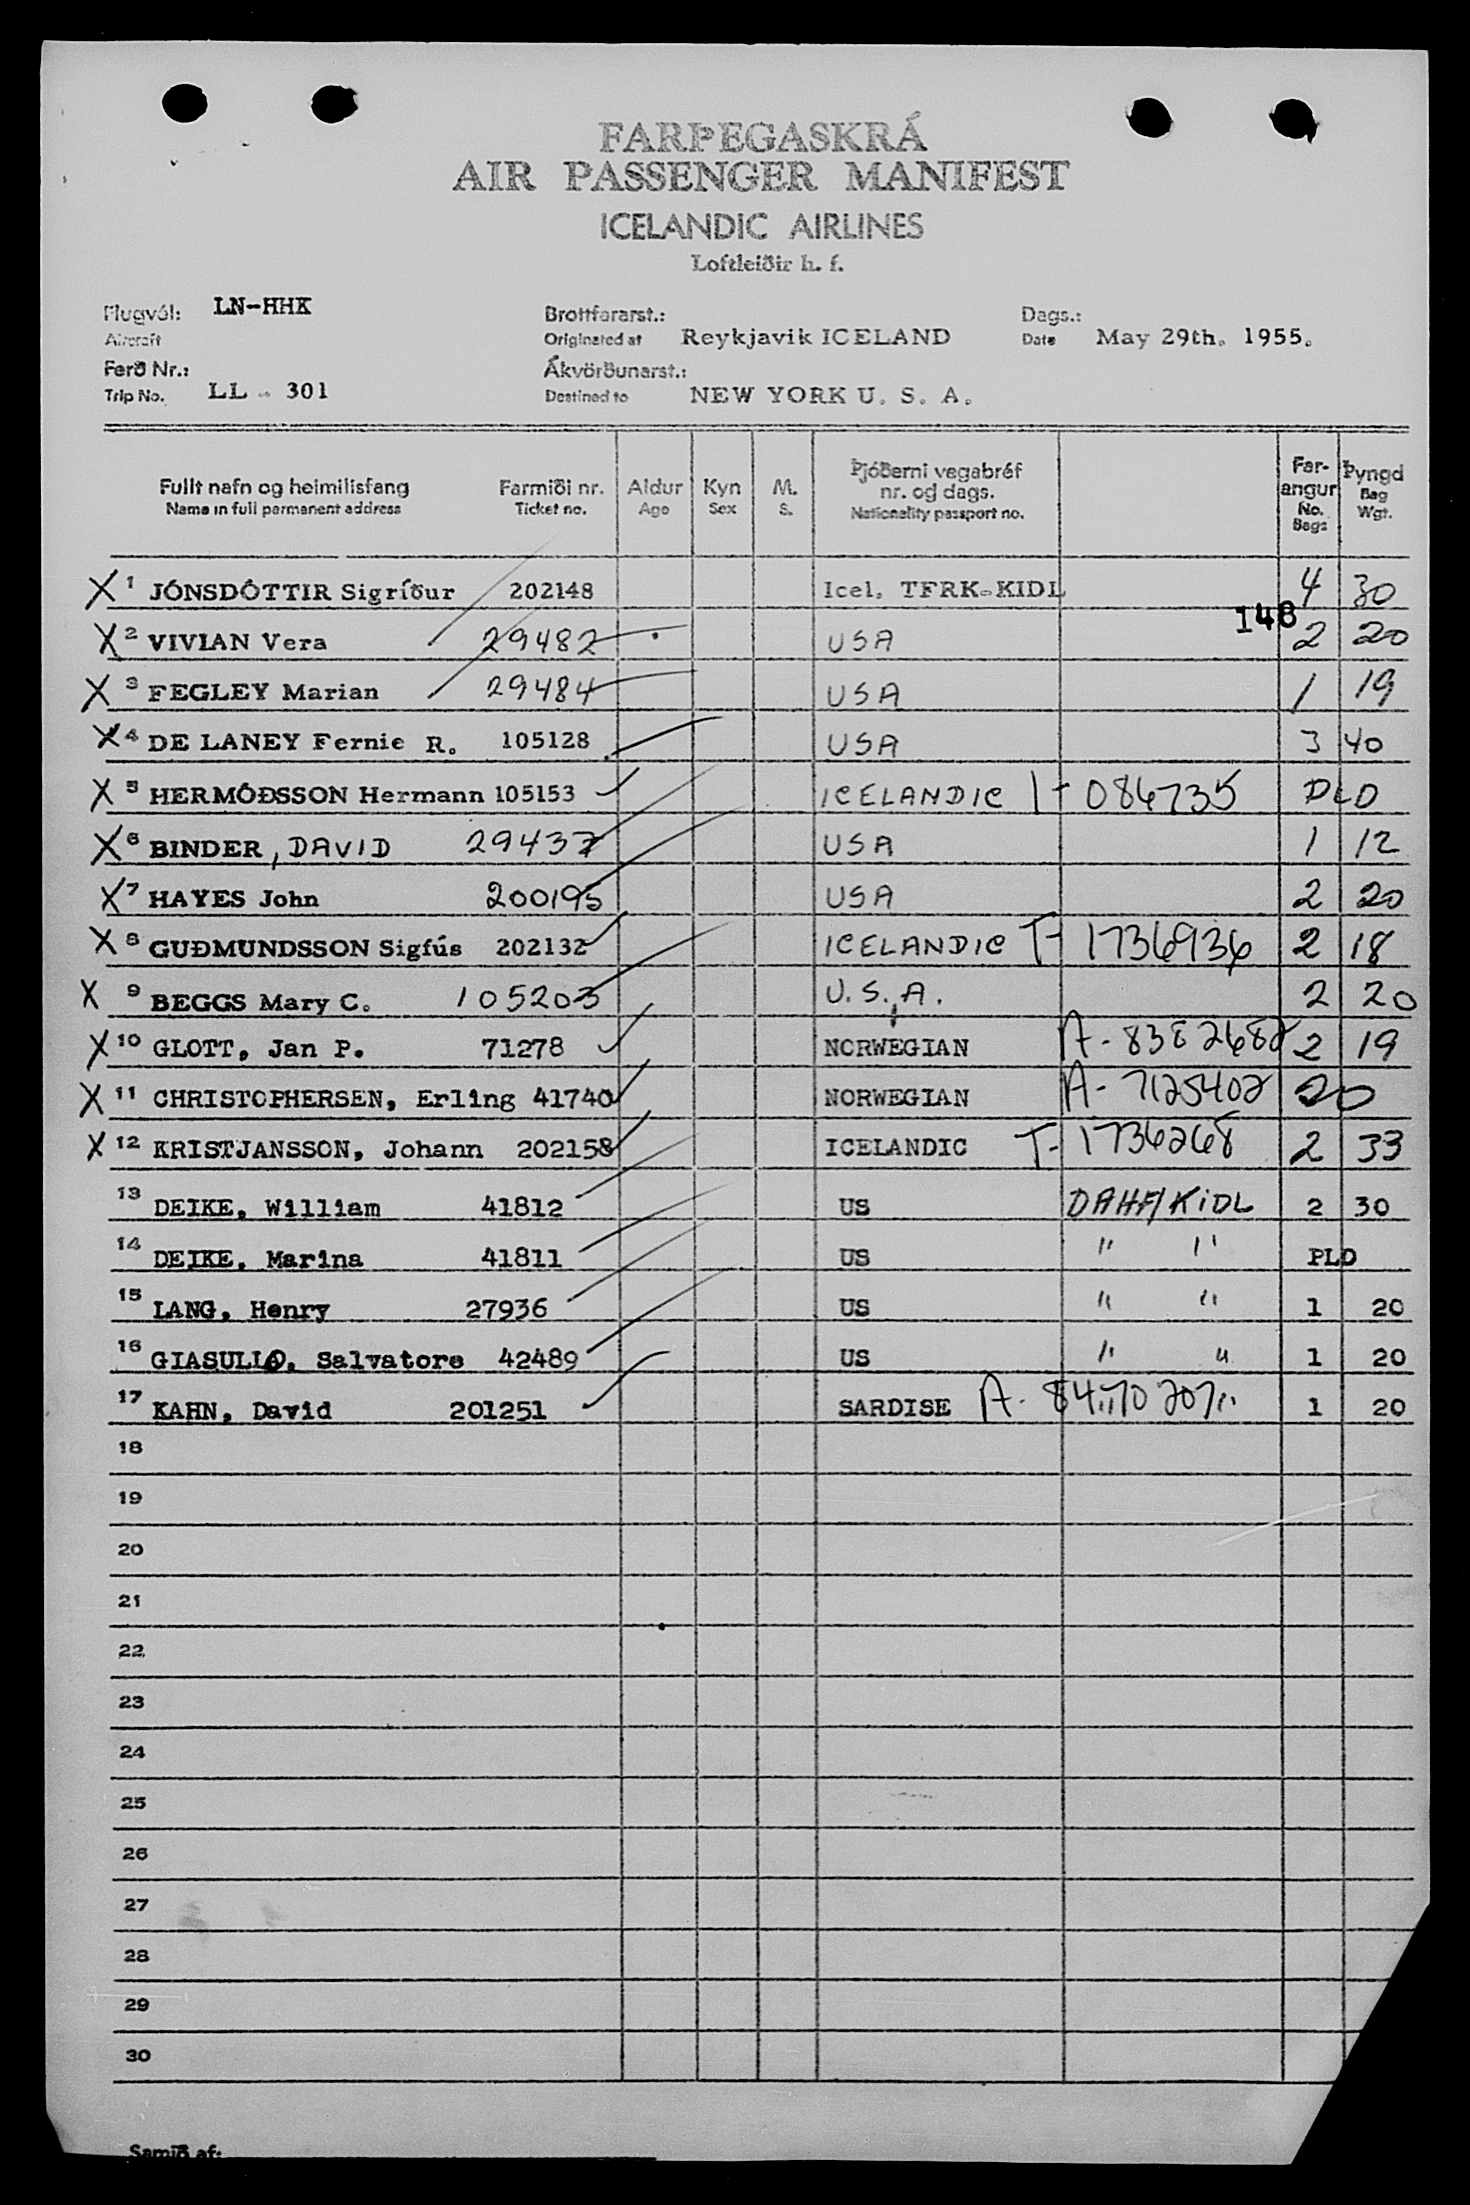 FARÞEGASKRÁ
AIR PASSENGER MANIFEST
ICELANDIC AIRLINES
Loftleiðir h. f.
Flugvél: LN-HHK Brottfararst.: Dags.:
Aircraft Originated at Reykjavik ICELAND Date May 29th. 1955.
Ferð Nr.: Ákvörðunarst.:
Trip No. LL - 301 Destined to NEW YORK U. S. A.
Fullt nafn og heimilisfang Farmiði nr. Aldur Kyn M. Þjóðerni vegabréf nr. og dags. Far-angur Þyngd
Name in full permanent address Ticket no. Age Sex S. Nationality passport no. No. Bags Bag Wgt.
X 1 JÓNSDÓTTIR Sigríður 202148 Icel. TFRK-KIDL 4 30
148
X 2 VIVIAN Vera 29482 USA 2 20
X 3 FEGLEY Marian 29484 USA 1 19
X 4 DE LANEY Fernie R. 105128 USA 3 40
X 5 HERMÓÐSSON Hermann 105153 ICELANDIC I- 086735 PLD
X 6 BINDER, DAVID 29437 USA 1 12
X 7 HAYES John 200195 USA 2 20
X 8 GUÐMUNDSSON Sigfús 202132 ICELANDIC T- 1736936 2 18
X 9 BEGGS Mary C. 105203 U.S.A. 2 20
X 10 GLOTT, Jan P. 71278 NORWEGIAN A- 8382682 2 19
X 11 CHRISTOPHERSEN, Erling 41740 NORWEGIAN A- 7125402 20
X 12 KRISTJANSSON, Johann 202158 ICELANDIC T- 1736268 2 33
13 DEIKE, William 41812 US DAHF/KIDL 2 30
14 DEIKE, Marina 41811 US " " PLD
15 LANG, Henry 27936 US " " 1 20
16 GIASULLO, Salvatore 42489 US " " 1 20
17 KAHN, David 201251 SARDISE A- 1 20
18
19
20
21
22
23
24
25
26
27
28
29
30
Samið af: